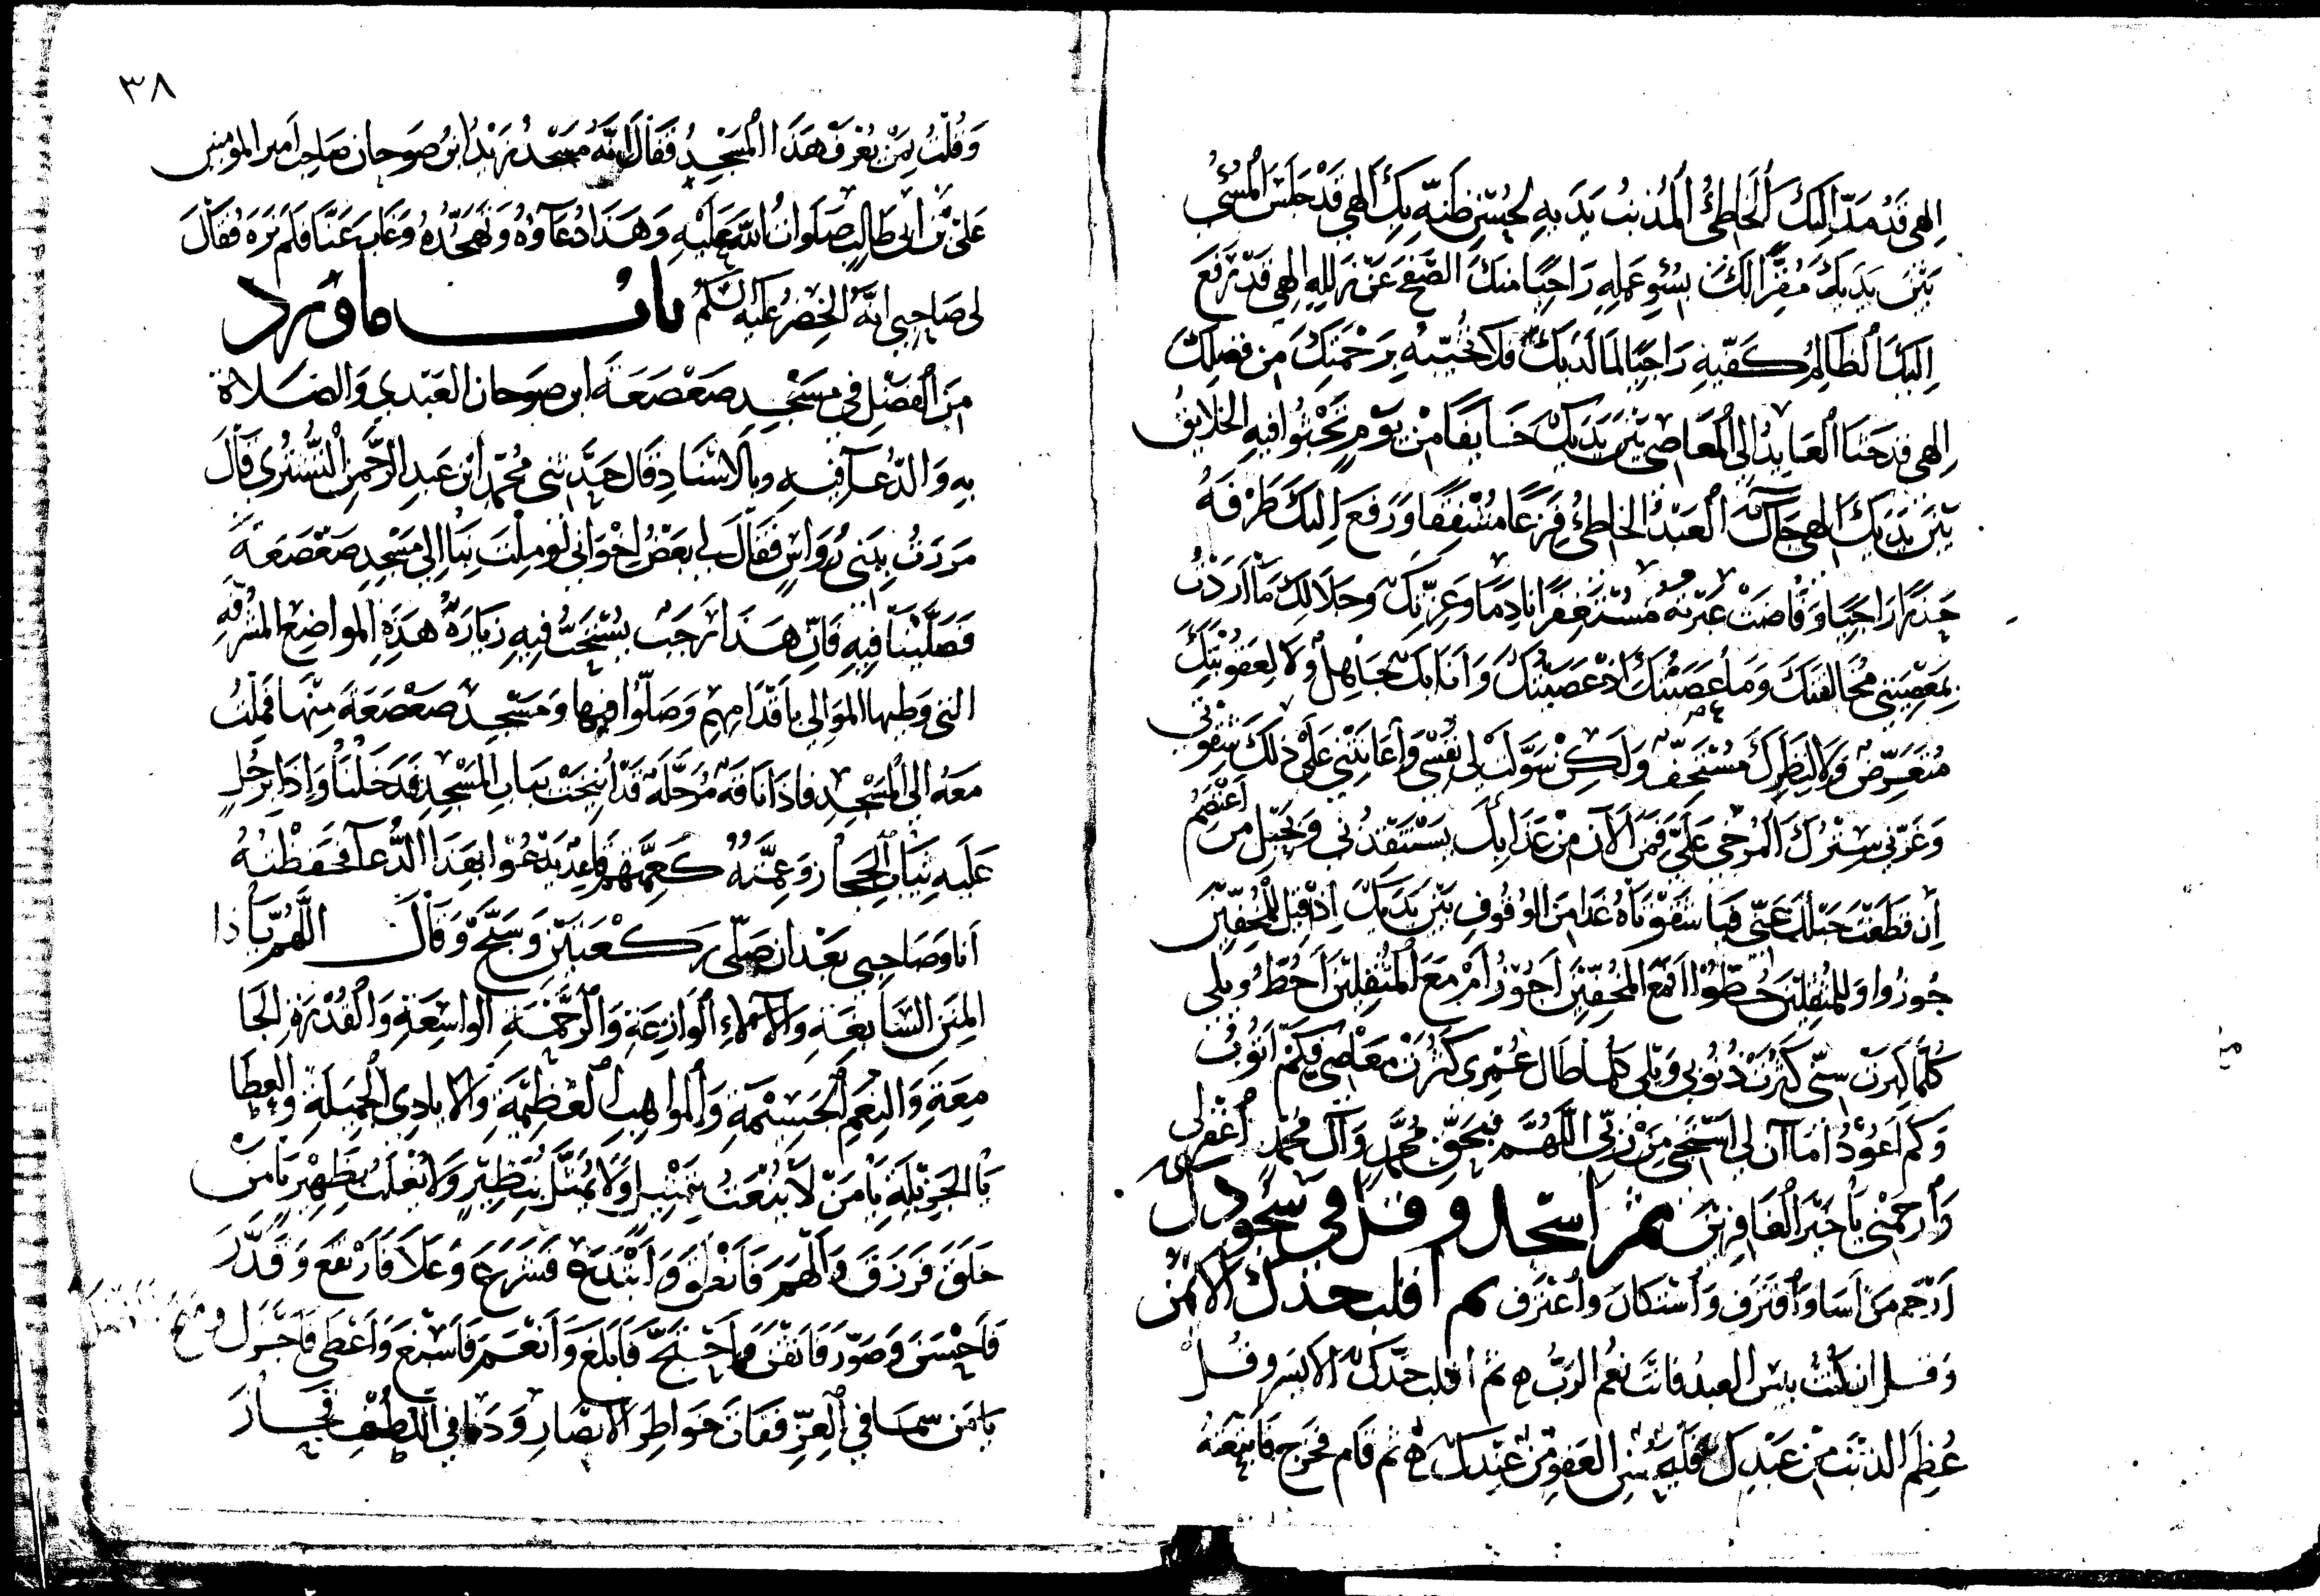 الهي قد مد اليك الخاطئ المذنب يديه لحسن ظنه بك الهي قد جلس المسيء
بين يديك مقرا لك بسوء عمله راجيا منك الصفح عن زلله الهي قد رفع
اليك الظالم كفيه راجيا لما لديك فلا تخيبه برحمتك من فضلك
الهي قد جثا العايد الى المعاصي بين يديك خايفا من يوم تجثوا فيه الخلايق
بين يديك الهي جاك العبد الخاطئ فزعا مشفقا ورفع اليك طرفه
حذرا راجيا وفاضت عبرته مستغفرا نادما وعزتك وجلالك ما اردت
بمعصيتي مخالفتك وما عصيتك اذ عصيتك وانا بك جاهل ولا لعقوبتك
متعرض ولا لنظرك مستخف ولكن سولت لي نفسي واعانتني على ذلك شقوتي
وغرني سترك المرخى علي فمن الان من عذابك يستنقذني وبحبل من اعتصم
ان قطعت حبلك عني فيا سوءتاه غدا من الوقوف بين يديك اذا قيل للمخفين
جوزوا وللمثقلين حطوا افمع المخفين اجوز ام مع المثقلين احط ويلي
كلما كبرت سني كثرت ذنوبي ويلي كلما طال عمري كثرت معاصي فكم اتوب
وكم اعود اما آن لي استحي من ربي اللهم فبحق محمد وآل محمد اغفر لي
وارحمني يا خير الغافرين ثم اسجد وقل في سجودك
ارحم من اسا واقترف واستكان واعترف ثم اقلب خدك الايمن
وقل ان كنت بيس العبد فانت نعم الرب ه ثم اقلب خدك الايسر وقل
عظم الذنب من عبدك فليحسن العفو من عندك ه ثم قام فخرج فاتبعته
٣٨
وقلت بمن يعرف هذا المسجد فقال انه مسجد زيد ابن صوحان صاحب امير المومنين
علي بن ابي طالب صلوات الله عليه وهذا دعاؤه وتهجده وغاب عنا فلم نره فقال
لي صاحبي انه الخضر عليه السلم باب ما ورد
من الفضل في مسجد صعصعة ابن صوحان العبدي والصلاة
به والدعآ فيه وبالاسناد قال حدثني محمد ابن عبد الرحمن التستري قال
مررت ببني رواس فقال لي بعض اخواني لو ملت بنا الى مسجد صعصعة
فصلينا فيه فان هذا رجب يستحب فيه زيارة هذه المواضع المشرفه
التي وطيها الموالي باقدامهم وصلوا فيها ومسجد صعصعة منها فملت
معه الى المسجد فاذا ناقة مرحلة قد انيخت بباب المسجد فدخلنا واذا برجل
عليه ثياب الحجاز وعمته كعمتهم قاعد يدعوا بهذا الدعآ فحفظته
انا وصاحبي بعد ان صلى ركعتين وسبح وقال اللهم يا ذا
المنن السابغة والآلاء الوازعة والرحمة الواسعة والقدرة الجا
معة والنعم الجسيمة والمواهب العظيمة والايادي الجميلة والعطا
يا الجزيلة يا من لا ينعت بتمثيل ولا يمثل بنظير ولا يغلب بظهير يا من
خلق فرزق والهم فانطق وابتدع فشرع وعلا فارتفع وقدر
فاحسن وصور فاتقن واحتج فابلغ وانعم فاسبغ واعطى فاجزل ومنح
يا من سما في العز ففات خواطر الابصار ودنا في اللطف فجاز